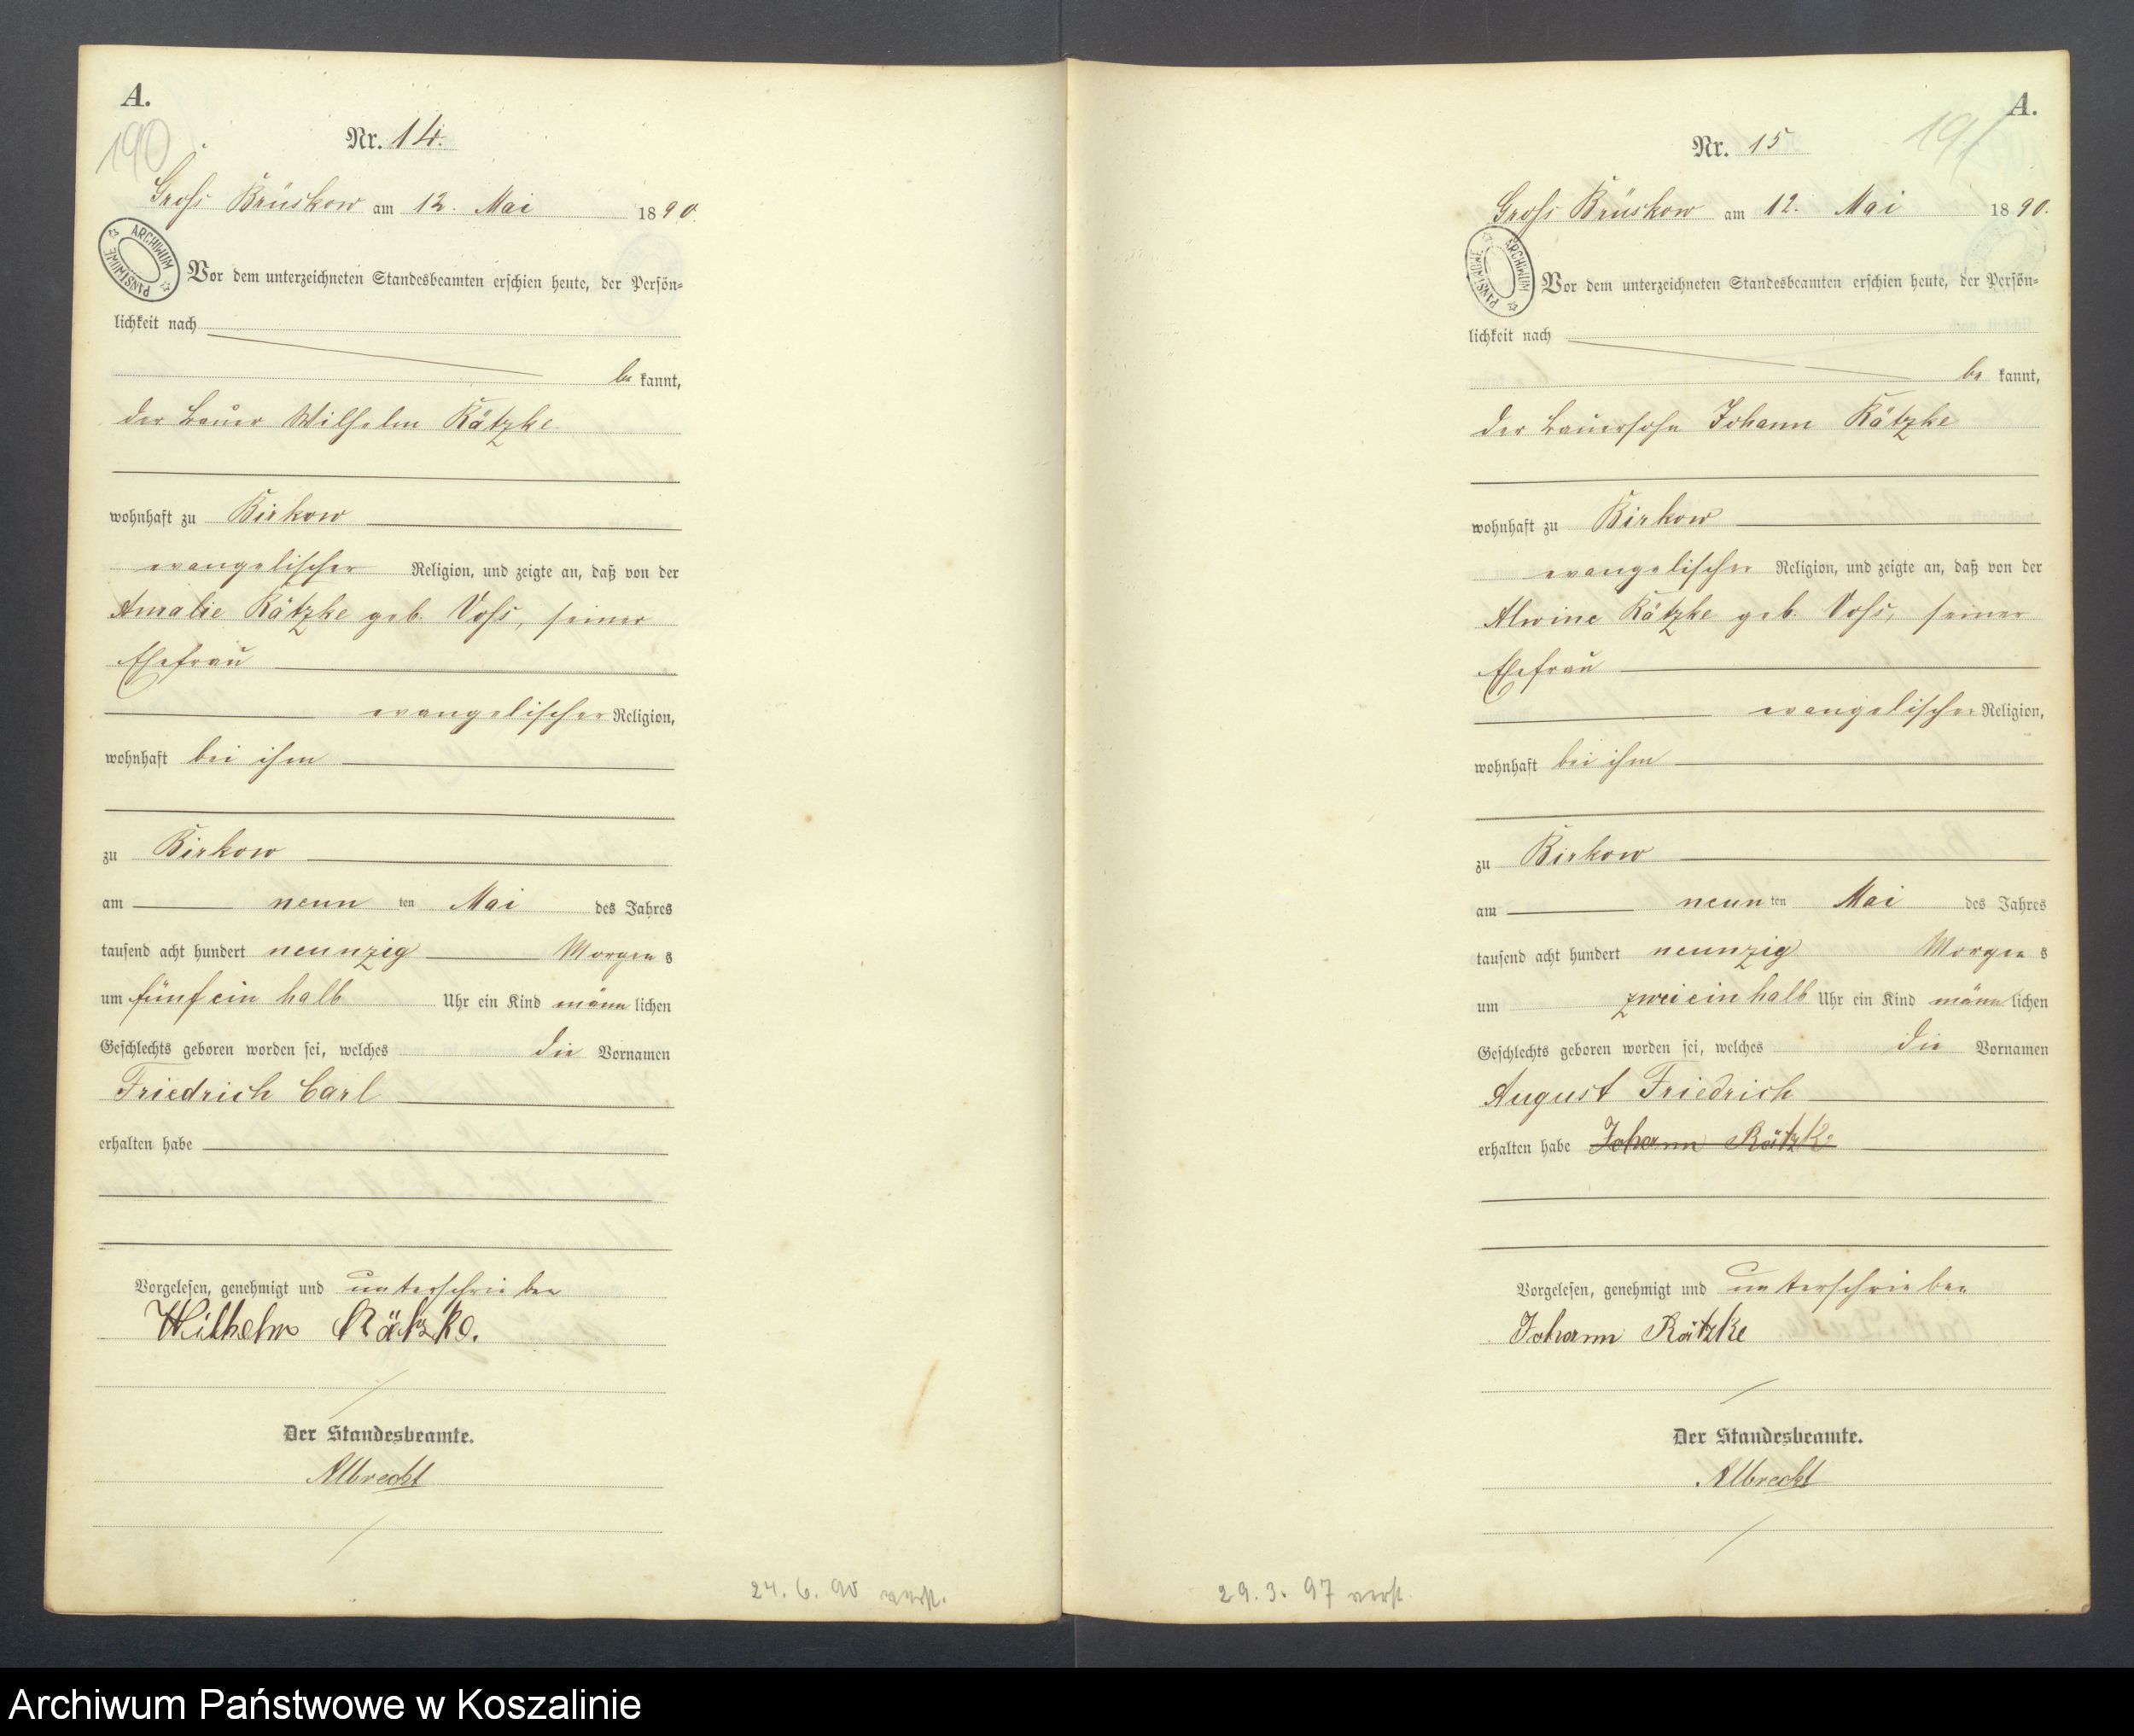 A.
190
Nr. 14.
Gross Brüskow am 12. Mai 1890.
ARCHIWUM PAŃSTWOWE
Vor dem unterzeichneten Standesbeamten erschien heute, der Persön=
lichkeit nach
be kannt,
der Bauer Wilhelm Rätzke
wohnhaft zu Birkow
evangelischer Religion, und zeigte an, daß von der
Amalie Rätzke geb. Voss, seiner
Ehefrau
evangelischer Religion,
wohnhaft bei ihm
zu Birkow
am neun ten Mai des Jahres
tausend acht hundert neunzig Morgens
um fünfein halb Uhr ein Kind männlichen
Geschlechts geboren worden sei, welches die Vornamen
Friedrich Carl
erhalten habe
Vorgelesen, genehmigt und unterschrieben
Wilhelm Rätzke.
Der Standesbeamte.
Albrecht
24. 6. 90 verst.
A.
191
Nr. 15
Gross Brüskow am 12. Mai 1890.
ARCHIWUM PAŃSTWOWE
Vor dem unterzeichneten Standesbeamten erschien heute, der Persön=
lichkeit nach
be kannt,
der Bauersohn Johann Rätzke
wohnhaft zu Birkow
evangelischer Religion, und zeigte an, daß von der
Alwine Rätzke geb. Voss, seiner
Ehefrau
evangelischer Religion,
wohnhaft bei ihm
zu Birkow
am neunten Mai des Jahres
tausend acht hundert neunzig Morgens
um zweieinhalb Uhr ein Kind männlichen
Geschlechts geboren worden sei, welches die Vornamen
August Friedrich
erhalten habe Johann Rätzke
Vorgelesen, genehmigt und unterschrieben
Johann Rätzke
Der Standesbeamte.
Albrecht
29. 3. 97 verst
Archiwum Państwowe w Koszalinie